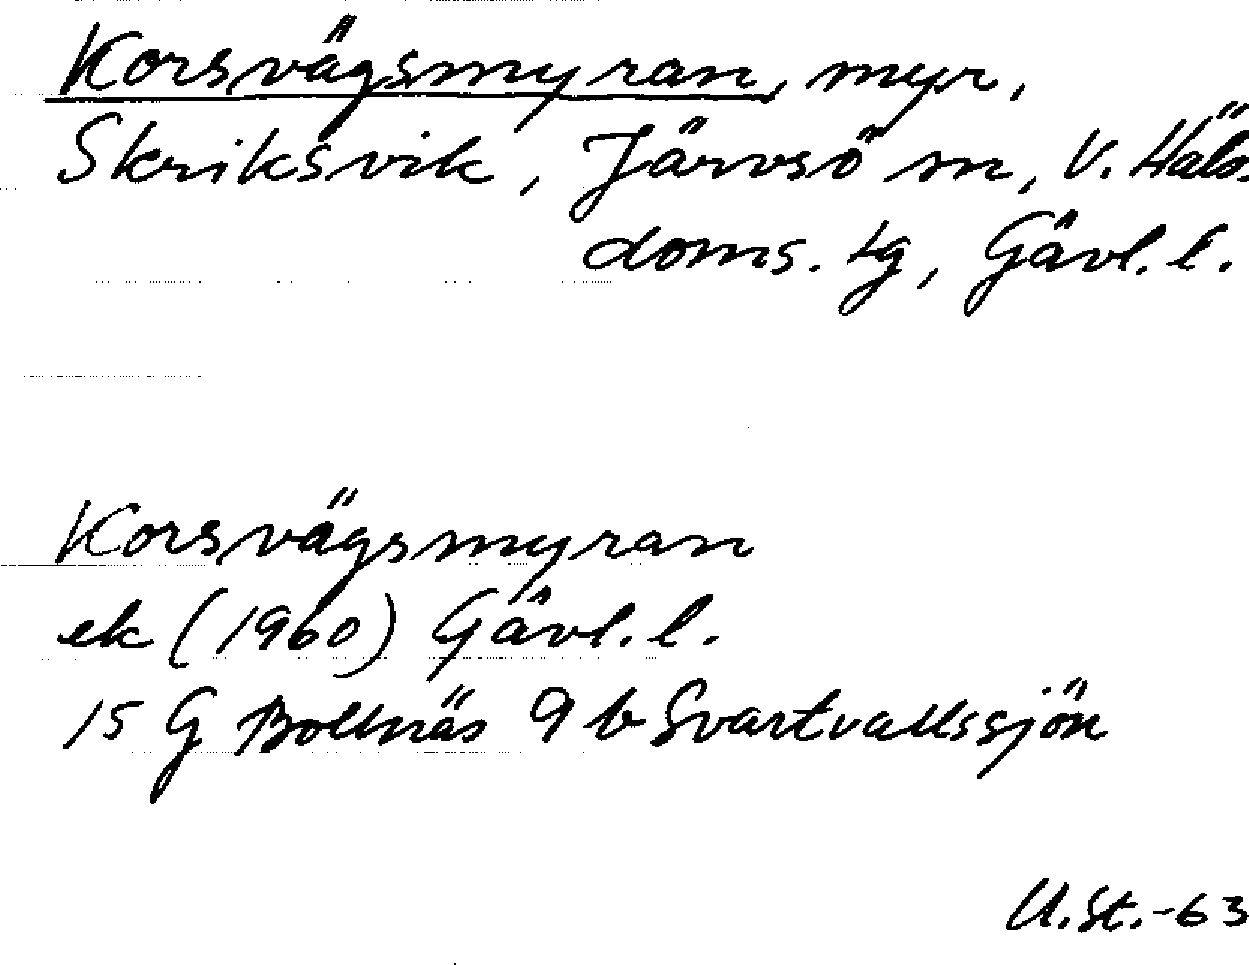 Korsvägsmyran, myr,
Skriksvik, Järvsö sn, V. Häls.
doms. tg, Gävl. l.
Korsvägsmyran
ek (1960) Gävl. l.
15 G Bollnäs 9 b Svartvallssjön
U. St. -63